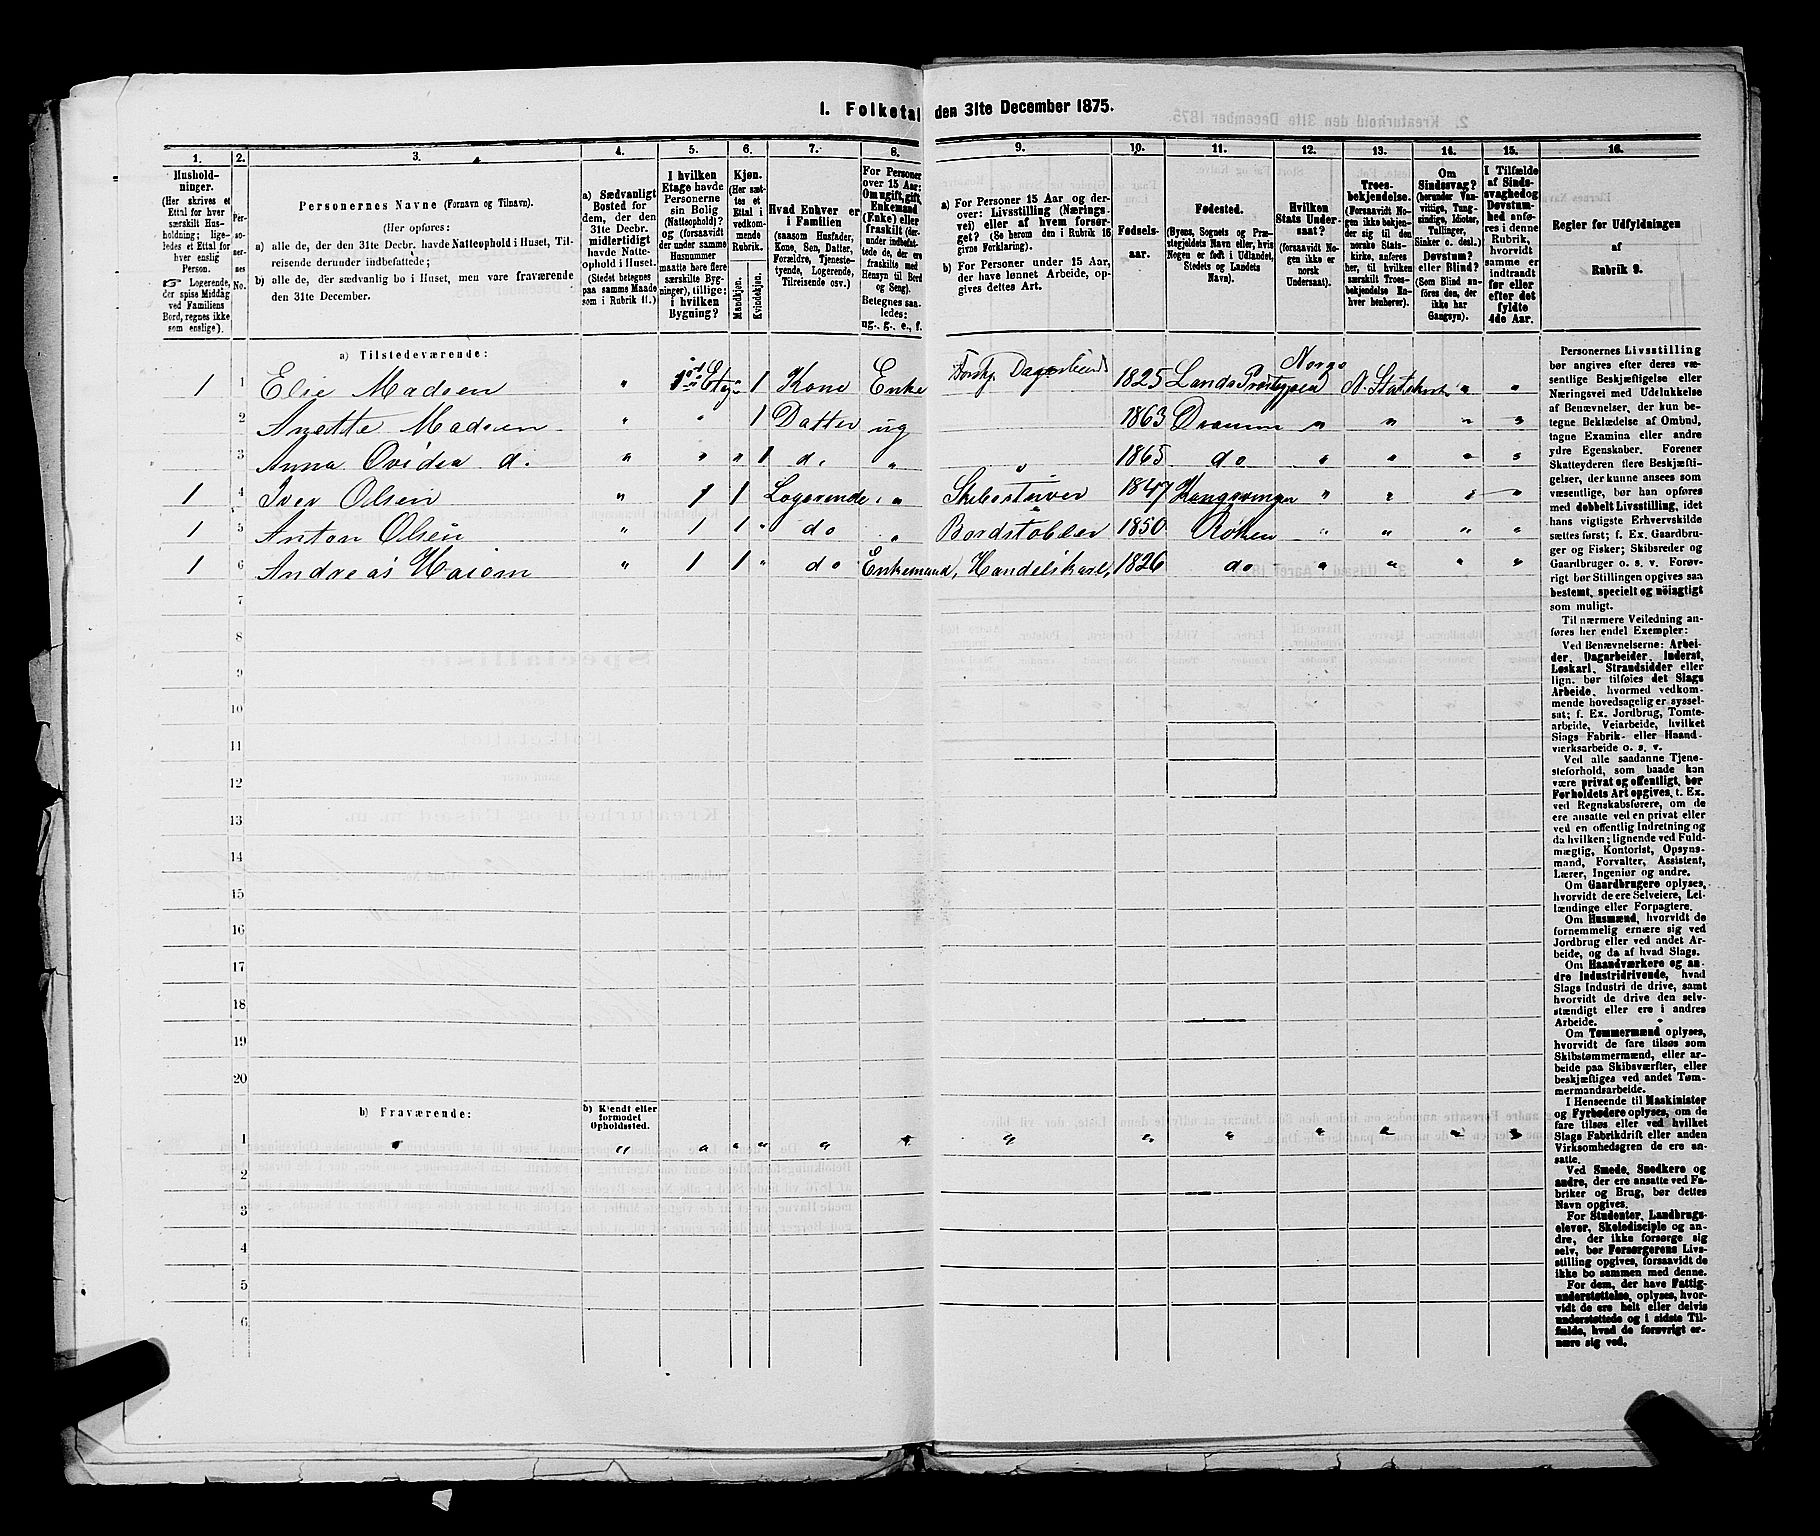 1. Folketal den 31te December 1875.
1. 2. 3. 4. 5. 6. 7. 8. 9. 10. 11. 12. 13. 14. 15. 16.
Hushold-
ninger.
(Her skrives et
Ettal for hver
særskilt Hus-
holdning; lige-
ledes et Ettal for
hver enslig
Person.
Logerende,
der spise Middag
ved Familiens
Bord, regnes ikke
som enslige).
Per-
so-
ner-
nes
No.
Personernes Navne (Fornavn og Tilnavn).
(Her opføres:
a) alle de, der den 31te Decbr. havde Natteophold i Huset, Til-
reisende derunder indbefattede;
b) alle de, der sædvanlig bo i Huset, men vare fraværende
den 31te December.
a) Sædvanligt
Bosted for
dem, der den
31te Decbr.
midlertidigt
havde Natte-
ophold i Huset.
(Stedet betegnes
paa samme Maade
som i Rubrik 11.)
I hvilken
Etage havde
Personerne
sin Bolig
(Natteophold)?
og (forsaavidt
der under samme
Husnummer
maatte høre flere
særskilte Byg-
ninger), tillige:
i hvilken
Bygning?
Kjøn.
(Her sæt-
tes et
Ettal i
vedkom-
mende
Rubrik.
Mandkjøn.
Kvindekjøn.
Hvad Enhver er
i Familien
(saasom Husfader,
Kone, Søn, Datter,
Forældre, Tjeneste-
tyende, Logerende,
Tilreisende osv.)
For Personer
over 15 Aar:
Om ugift, gift,
Enkemand
(Enke) eller
fraskilt (der-
under indbefat-
tede de, der ere
fraskilte med
Hensyn til Bord
og Seng).
Betegnes saa-
ledes:
ug., g., e., f.
a) For Personer 15 Aar og der-
over: Livsstilling (Nærings-
vei) eller af hvem forsør-
get? (Se herom den i Rubrik 16
givne Forklaring).
b) For Personer under 15 Aar,
der have lønnet Arbeide, op-
gives dettes Art.
Fødsels-
aar.
Fødested.
(Byens, Sognets og Præ-
stegjeldets Navn eller, hvis
Nogen er født i Udlandet,
Stedets og Landets
Navn).
Hvilken
Stats Under-
saat?
(forsaavidt No-
gen ikke er
norsk
Undersaat).
Troes-
bekjendelse.
(Forsaavidt No-
gen ikke bekjen-
der sig til den
norske Stats-
kirke, anføres
her, til hvilken
særskilt Troes-
bekjendelse En-
hver henhører).
Om
Sindssvag?
(herunder Van-
vittige, Tung-
sindige, Idioter,
Tullinger,
Sinker o. desl.)
Døvstum?
eller Blind?
(Som Blind an-
føres den, der
ikke har
Gangsyn).
I Tilfælde
af Sinds-
svaghed og
Døvstum-
hed anfø-
res i denne
Rubrik,
hvorvidt
samme er
indtraadt
før eller
efter det
fyldte
4de Aar.
Regler for Udfyldningen
af
Rubrik 9.
a) Tilstedeværende:
1 1 Elie Madsen " 1 Kone Enke 1825 " "
2 Anette Madsen " " 1 Datter ug 1863 " " " "
3 Anna d. " " " 1 d. " " 1865 do " " " "
1 4 Iver Olsen " 1 1 Logerende " 1847 " " " "
1 5 Anton Olsen " 1 1 " do " 1850 Røken " " " "
1 6 Andreas " 1 1 " do Enkemand, Handelskarl, 1826 do " " " "
7
8
9
10
11
12
13
14
15
16
17
18
19
20
b) Fraværende:
b) Kjendt eller
formodet
Opholdssted.
1 " " " " " " " " " " " " " "
2
3
4
5
6
Personernes Livsstilling
bør angives efter deres væ-
sentlige Beskjæftigelse eller
Næringsvei med Udelukkelse
af Benævnelser, der kun be-
tegne Beklædelse af Ombud,
tagne Examina eller andre
ydre Egenskaber. Forener
Skatteyderen flere Beskjæfti-
gelser, der kunne ansees som
væsentlige, bør han opføres
med dobbelt Livsstilling, idet
hans vigtigste Erhvervskilde
sættes først; f. Ex. Gaardbru-
ger og Fisker; Skibsreder og
Gaardbruger o. s. v. Forøv-
rigt bør Stillingen opgives saa
bestemt, specielt og nøiagtigt
som muligt.
Til nærmere Veiledning an-
føres her endel Exempler:
Ved Benævnelserne: Arbei-
der, Dagarbeider, Inderst,
Løskarl, Strandsidder eller
lign. bør tilføies det Slags
Arbeide, hvormed vedkom-
mende hovedsagelig er syssel-
sat; f. Ex. Jordbrug, Tomte-
arbeide, Veiarbeide, hvilket
Slags Fabrik- eller Haand-
værksarbeide o. s. v.
Ved alle saadanne Tjene-
steforhold, som baade kan
være privat og offentligt, bør
Forholdets Art opgives, f. Ex.
ved Regnskabsførere, om de
ere ansatte ved en privat eller
ved en offentlig Indretning og
da hvilken; lignende ved Fuld-
mægtig, Kontorist, Opsyns-
mand, Forvalter, Assistent,
Lærer, Ingeniør og andre.
Om Gaardbrugere oplyses,
hvorvidt de ere Selveiere, Lei-
lændinge eller Forpagtere.
Om Husmænd, hvorvidt de
fornemmelig ernære sig ved
Jordbrug eller ved andet Ar-
beide, og da af hvad Slags.
Om Haandværkere og an-
dre Industridrivende, hvad
Slags Industri de drive, samt
hvorvidt de drive den selv-
stændigt eller ere i andres
Arbeide.
Om Tømmermænd oplyses,
hvorvidt de fare tilsøs som
Skibstømmermænd, eller ar-
beide paa Skibsværfter, eller
beskjæftiges ved andet Tøm-
mermandsarbeide.
I Henseende til Maskinister
og Fyrbødere oplyses, om de
fare tilsøs eller ved hvilket
Slags Fabrikdrift eller anden
Virksomhedsgren de ere an-
satte.
Ved Smede, Snedkere og
andre, der ere ansatte ved Fa-
briker og Brug, bør dettes
Navn opgives.
For Studenter, Landbrugs-
elever, Skoledisciple og an-
dre, der ikke forsørge sig
selv, bør Forsørgerens Livs-
stilling opgives, forsaavidt de
ikke bo sammen med denne.
For dem, der have Fattig-
understøttelse, oplyses, hvor-
vidt de ere helt eller delvis
understøttede og i sidste Til-
fælde, hvad de forøvrigt er-
nære sig ved.